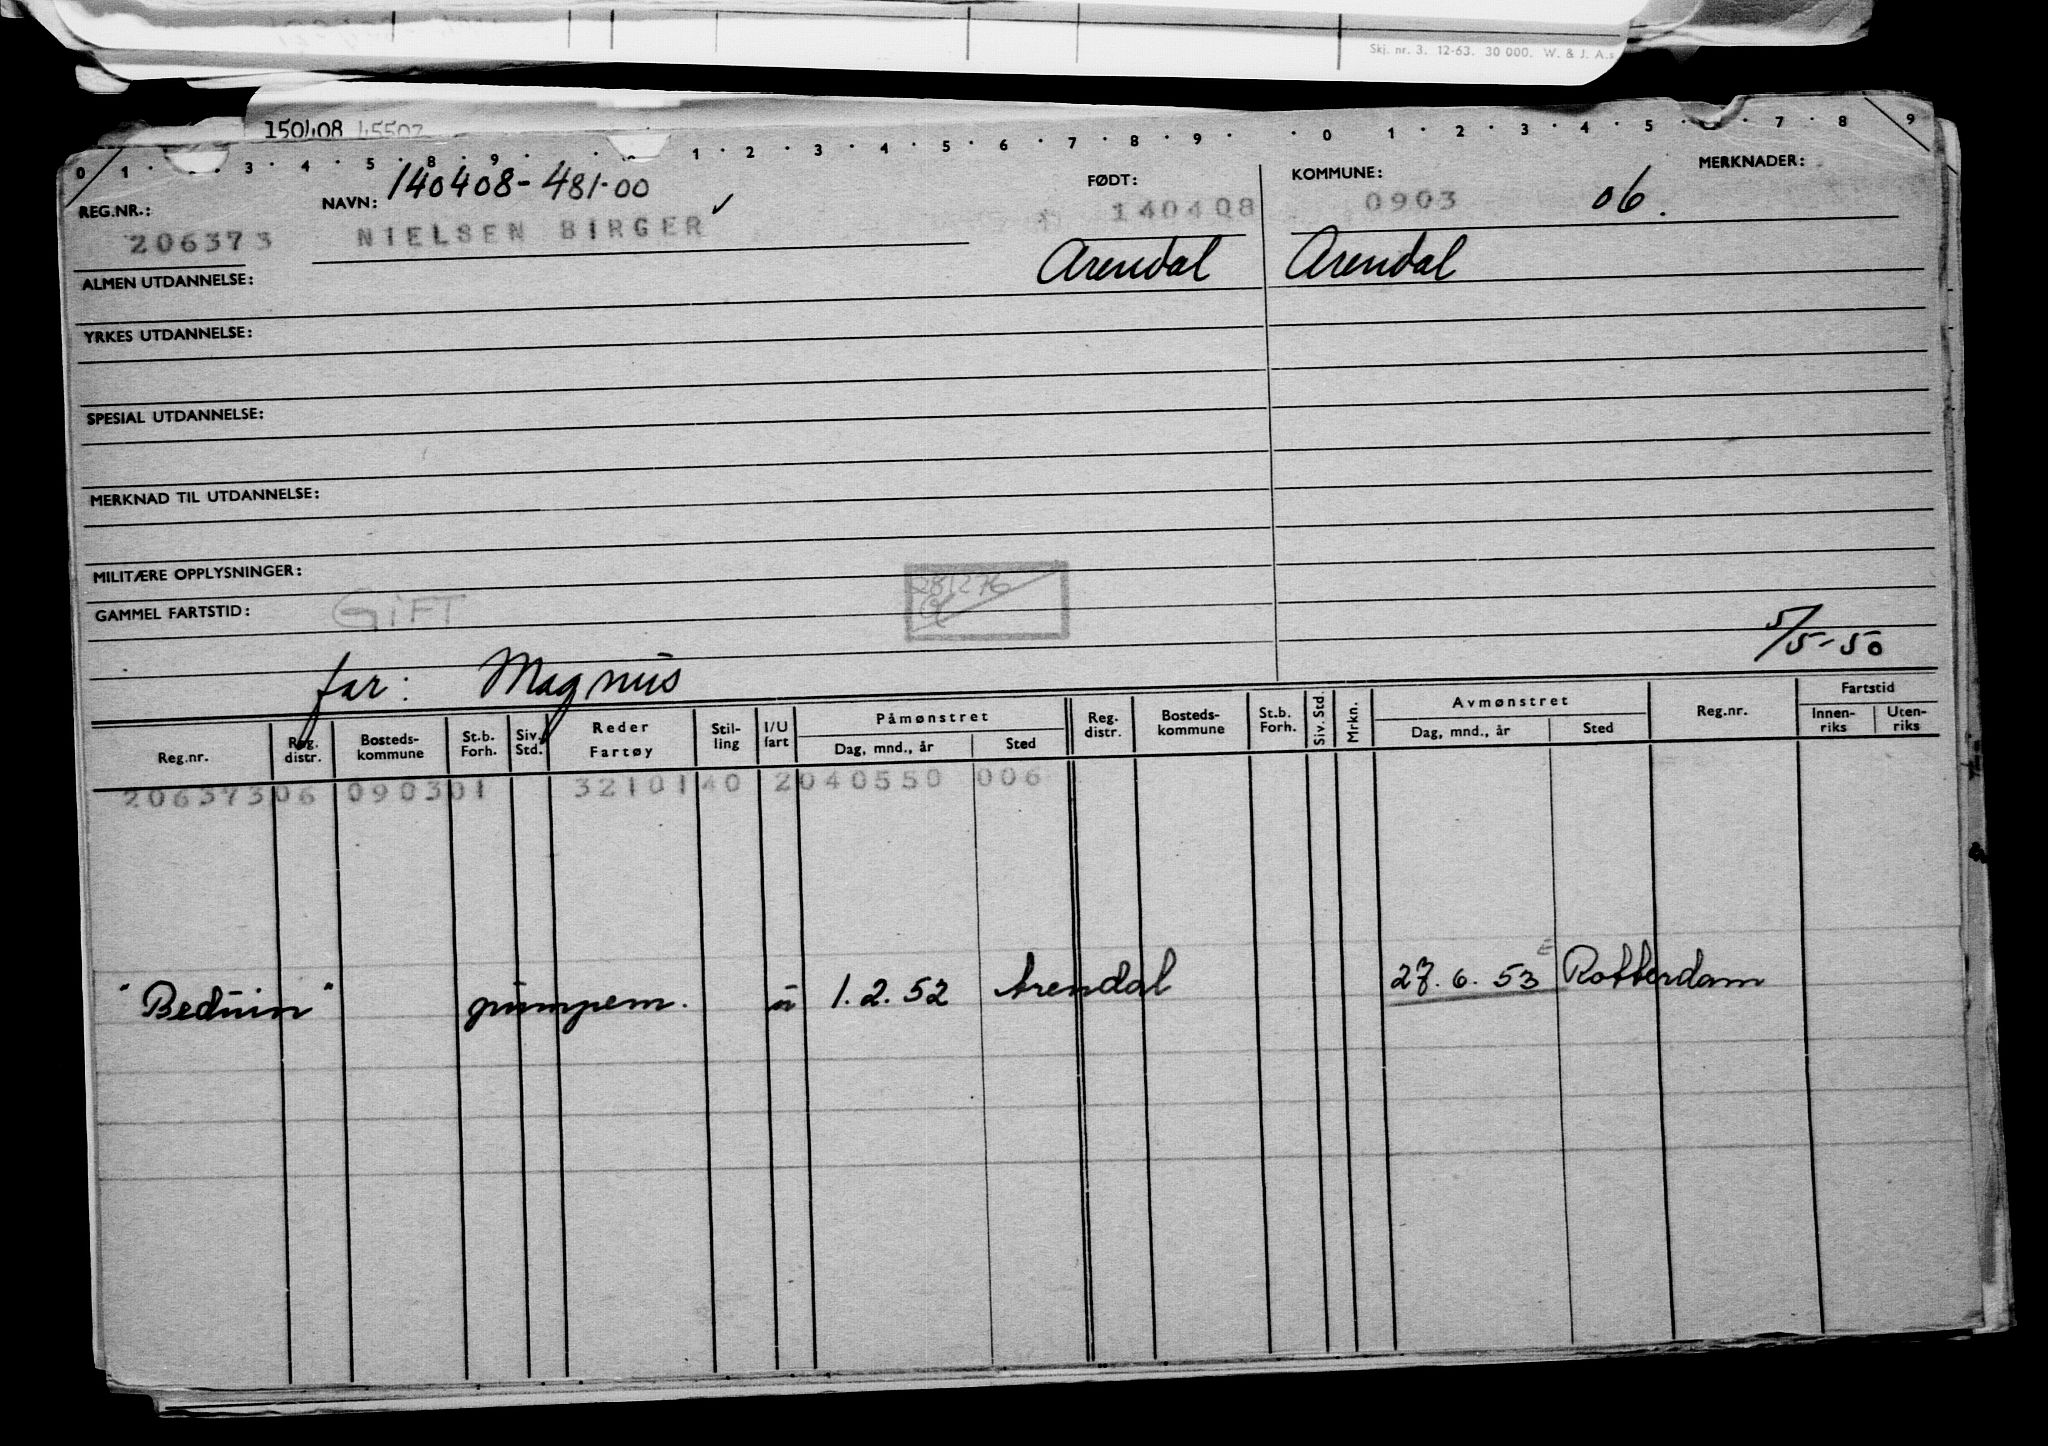 Skj. nr. 3. 12-63. 30 000. W. & J. A.s
150408 45502
0 1 · 3 · 4 · 5 · 8 · 9 · 1 · 2 · 3 · 4 · 5 · 6 · 7 · 8 · 9 · · 0 · 1 · 2 · 3 · 4 · 5 · · 7 · 8 9
REG.NR.: NAVN: 140408-481-00 FØDT: KOMMUNE: MERKNADER:
206373 NIELSEN BIRGER ✓ 140408 0903 06.
ALMEN UTDANNELSE: Arendal Arendal
YRKES UTDANNELSE:
SPESIAL UTDANNELSE:
MERKNAD TIL UTDANNELSE:
MILITÆRE OPPLYSNINGER: 281276
GAMMEL FARTSTID: GIFT
5/5-50
far: Magnus
Reg.nr. Reg. distr. Bosteds-kommune St.b. Forh. Siv. Std. Reder Fartøy Stil-ling I/U fart Påmønstret Dag, mnd., år Sted Reg. distr. Bosteds-kommune St.b. Forh. Siv. Std. Mrkn. Avmønstret Dag, mnd., år Sted Reg.nr. Fartstid Innen-riks Uten-riks
206373 06 0903 01 32101 40 2 040550 006
"Beduin" pumpem. u 1.2.52 Arendal 27.6.53 E Rotterdam